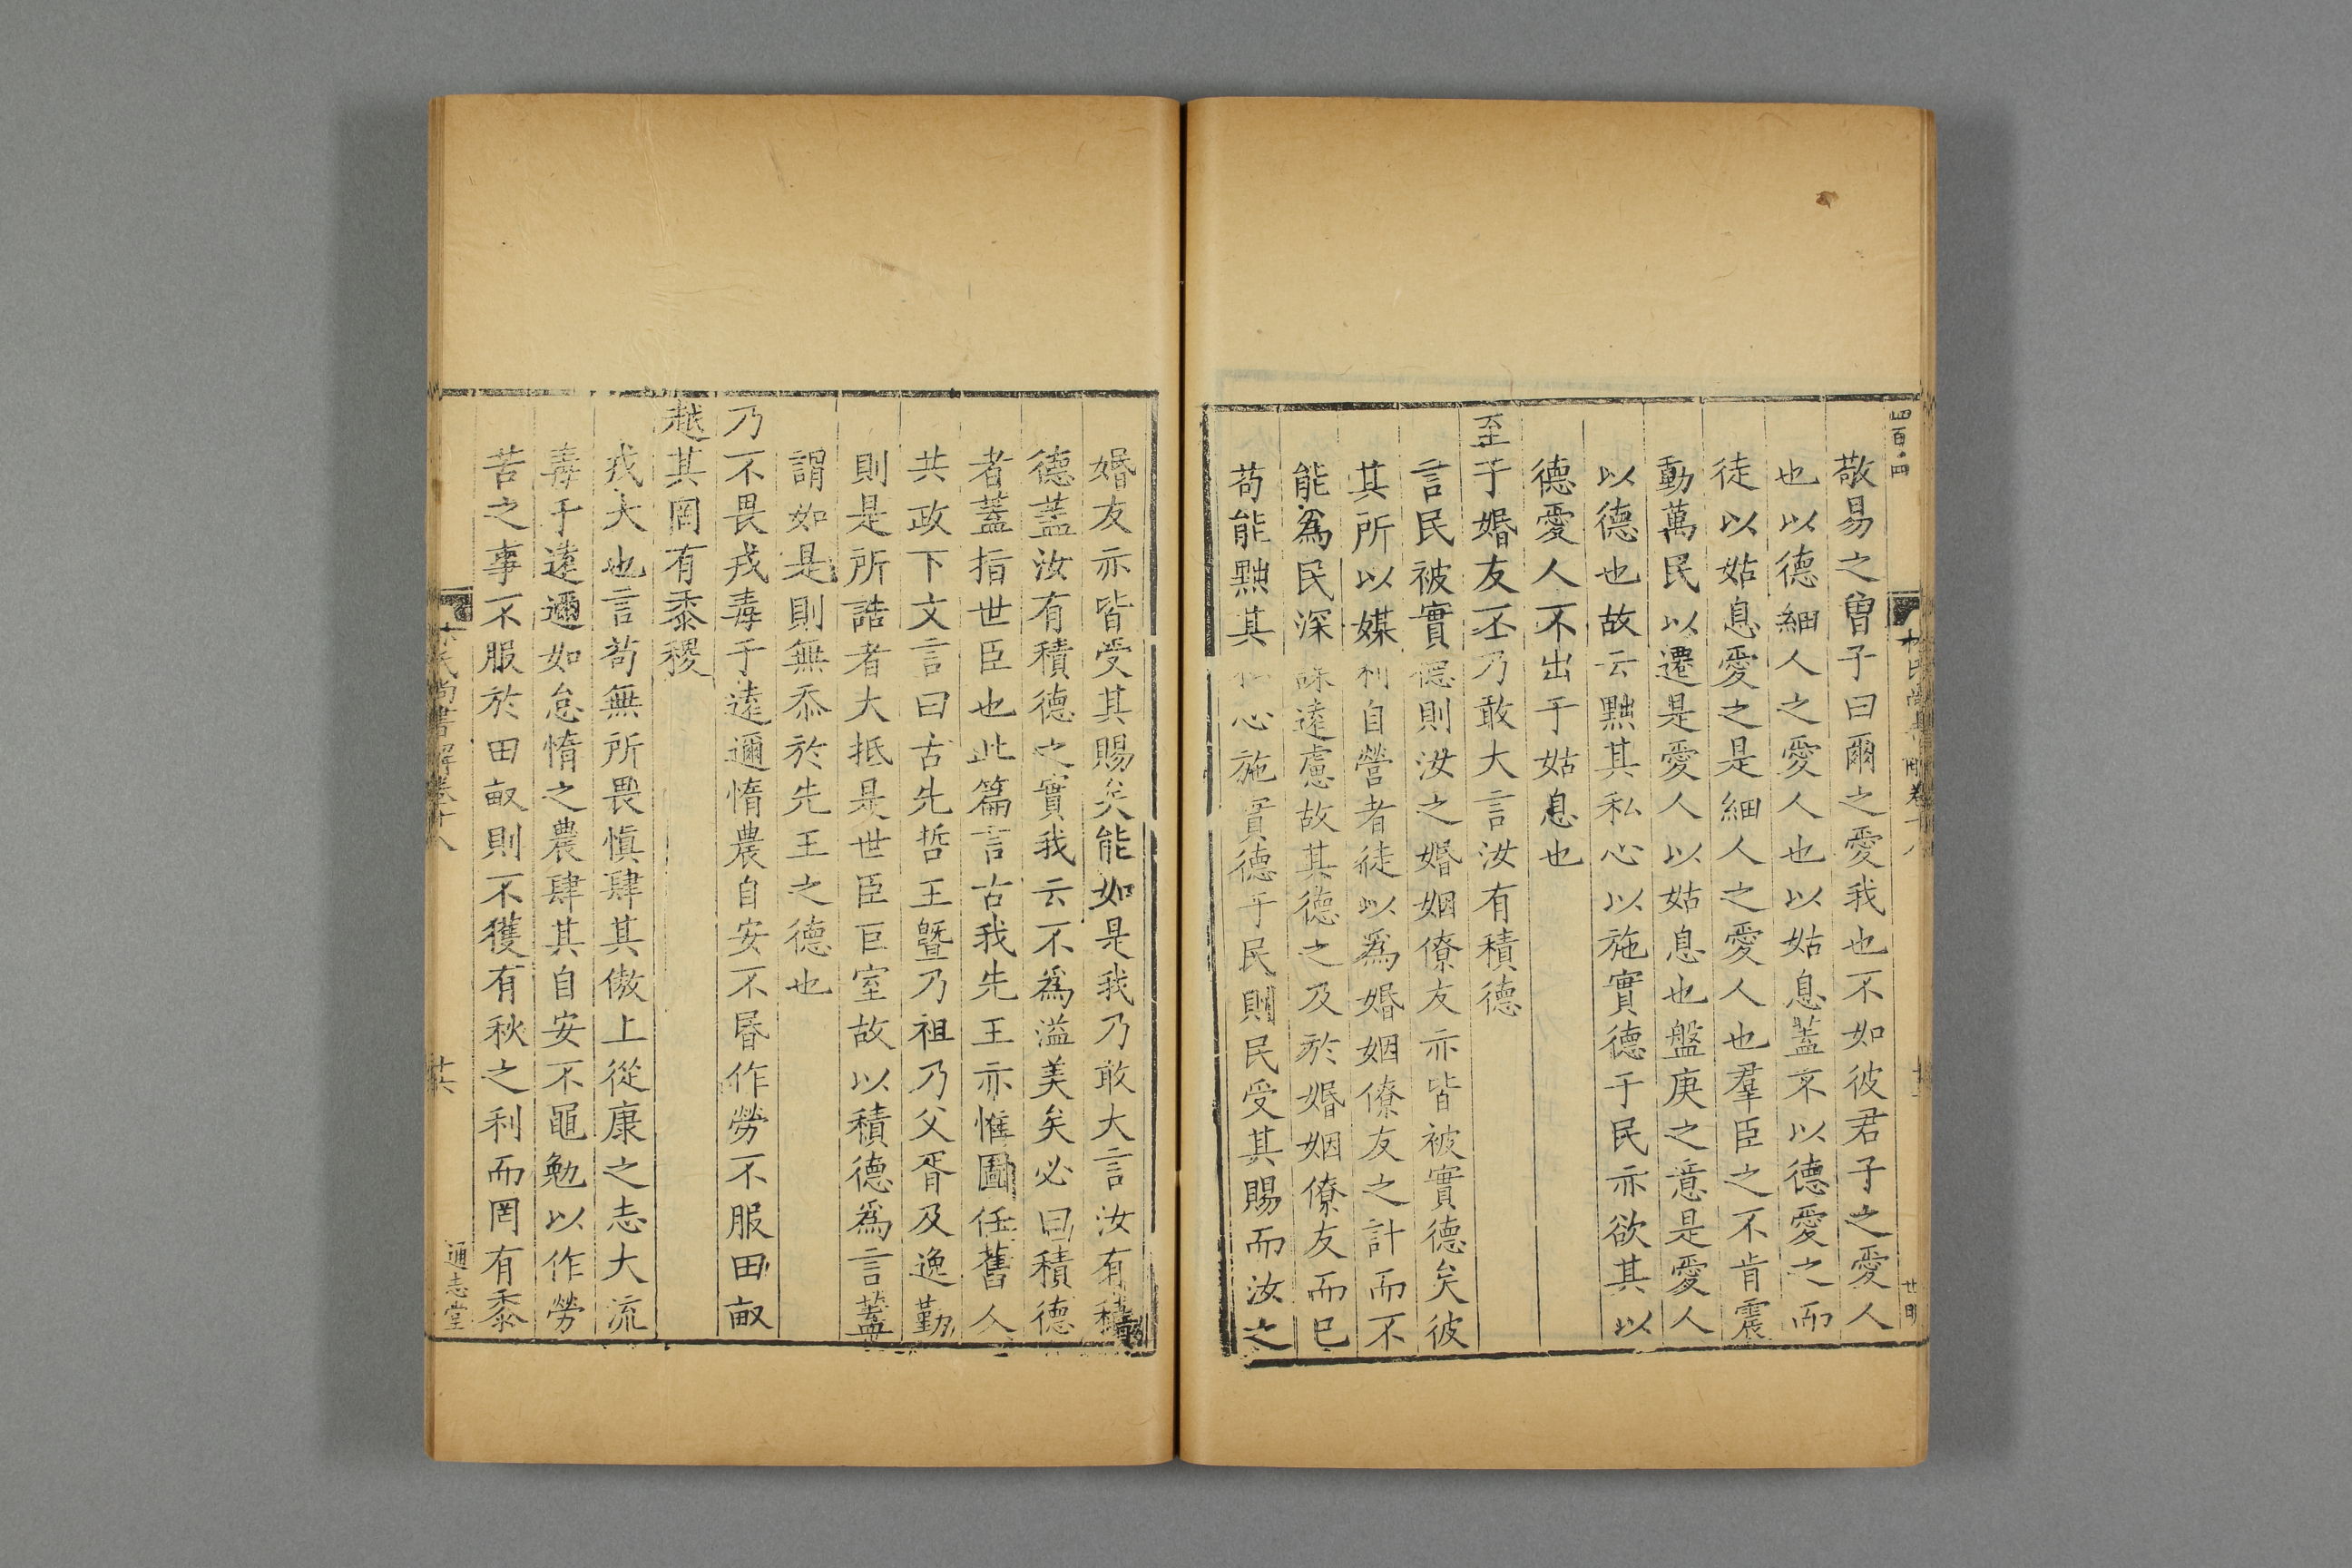 四百四
敬易之曾子曰爾之愛我也不如彼君子之愛人
也以德細人之愛人也以姑息蓋不以德愛之而
徒以姑息愛之是細人之愛人也羣臣之不肯震
動萬民以遷是愛人以姑息也盤庚之意是愛人
以德也故云黜其私心以施實德于民亦欲其以
德愛人不出于姑息也
至于婚友丕乃敢大言汝有積德
言民被實德則汝之婚姻僚友亦皆被實德矣彼
其所以媒利自營者徒以爲婚姻僚友之計而不
能爲民深謀遠慮故其德之及於婚姻僚友而已
苟能黜其私心施實德于民則民受其賜而汝之
婚友亦皆受其賜矣能如是我乃敢大言汝有積
德蓋汝有積德之實我云不爲溢美矣必曰積德
者蓋指世臣也此篇言古我先王亦惟圖任舊人
共政下文言曰古先哲王暨乃祖乃父胥及逸勤
則是所誥者大抵是世臣巨室故以積德爲言蓋
謂如是則無忝於先王之德也
乃不畏戎毒于遠邇惰農自安不昬作勞不服田畝
越其罔有黍稷
戎大也言苟無所畏愼肆其傲上從康之志大流
毒于遠邇如怠惰之農肆其自安不黽勉以作勞
苦之事不服於田畝則不獲有秋之利而罔有黍
林氏尚書解卷十八
十六
通志堂